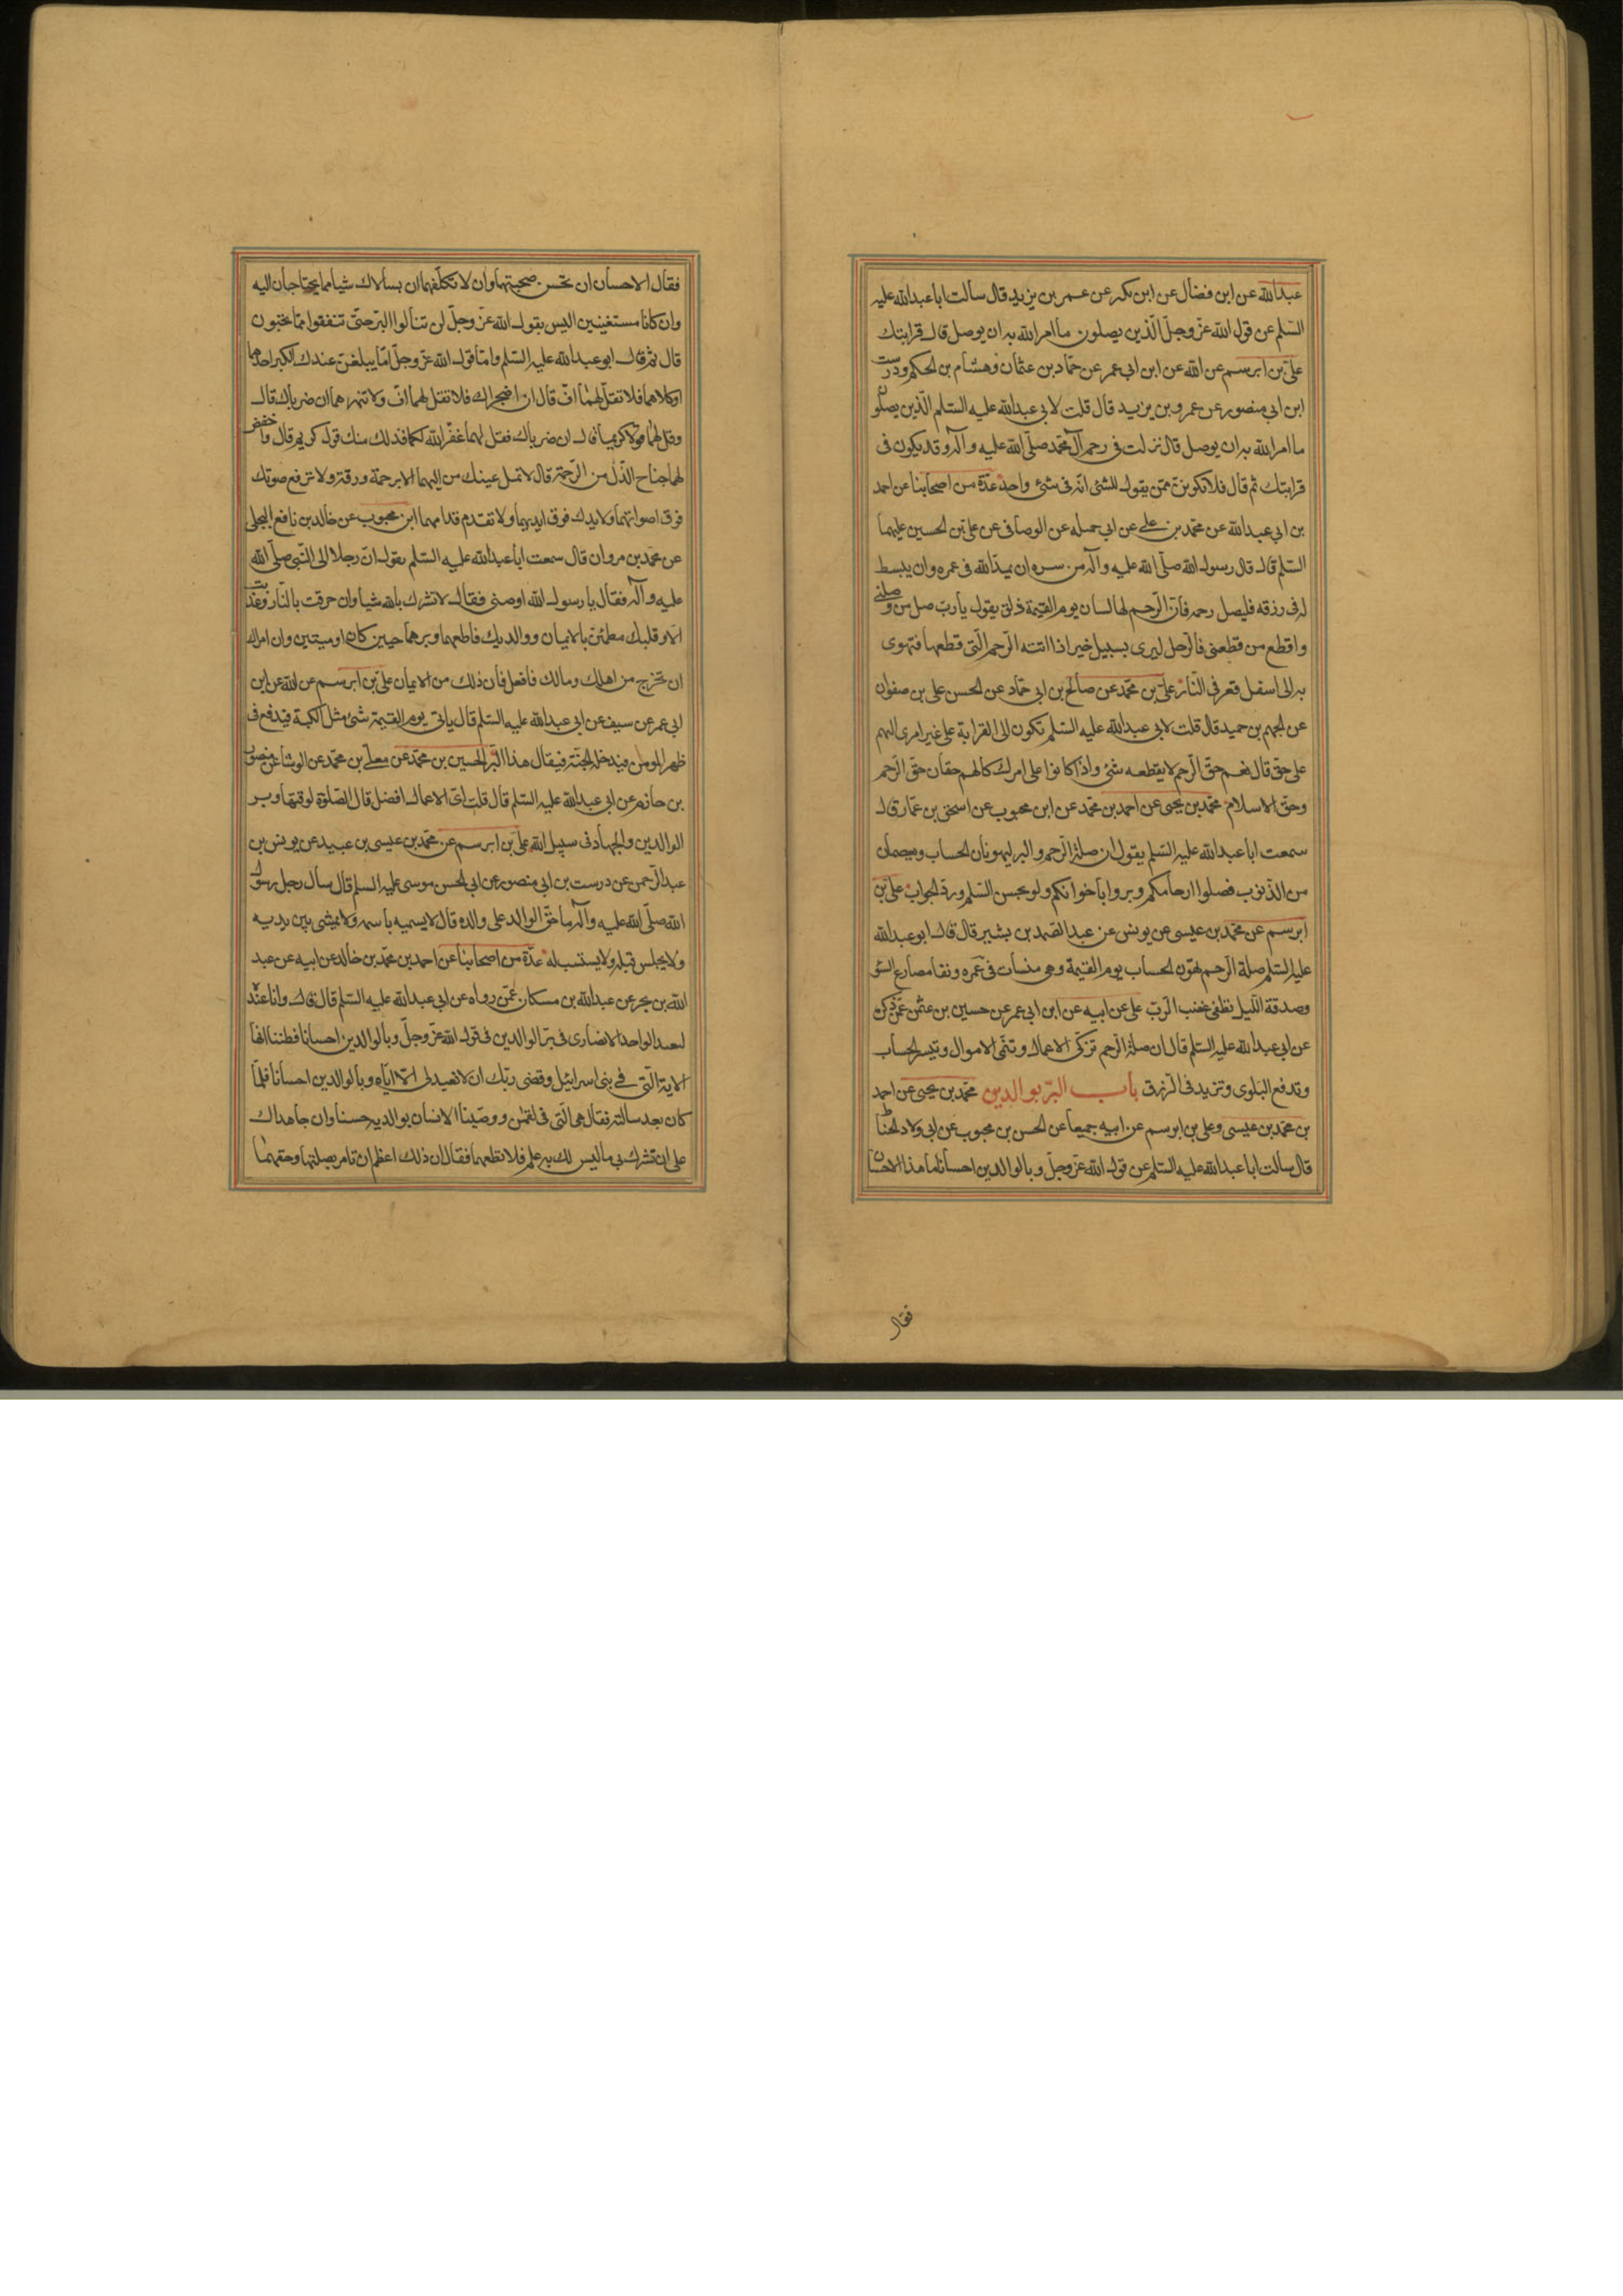 عبدالله عن ابن فضال عن ابن بكر عن عمر بن يزيد قال سالت اباعبدالله عليه
السّلم عن قول الله عزّ وجلّ الّذين يصلون ما امر الله به ان يوصل قال قرابتك
علىّ بن ابرسم عن الله عن ابن ابى عمر عن حمّاد بن عثمان وهشام بن الحكم ودرست
ابن ابى منصور عن عمرو بن يزيد قال قلت لابى عبدالله عليه السّلم الّذين يصلون
ما امر الله به ان يوصل قال نزلت فى رحم آل محمّد صلّى الله عليه وآله وقد يكون فى
قرابتك ثم قال فلا تكوننّ ممّن يقول للشئ انّه فى شئ واحد عدّة من اصحابنا عن احمد
بن ابى عبدالله عن محمّد بن على عن ابى جميله عن الوصافى عن علىّ بن الحسين عليهما
السّلم قال قال رسول الله صلّى الله عليه وآله من سره ان يمدّ الله فى عمره وان يبسط
له فى رزقه فليصل رحمه فانّ الرّحم لها لسان يوم القيمة ذلق يقول يا ربّ صل من وصلنى
واقطع من قطعنى فالرّجل ليرى بسبيل خير اذا اتته الرّحم الّتى قطعها فتهوى
به الى اسفل قعر فى النّار علىّ بن محمّد عن صالح بن ابى حمّاد عن الحسن على بن صفوان
عن الجهم بن حميد قال قلت لابى عبدالله عليه السّلم تكون لى القرابة على غير امرى الهم
على حقّ قال نعم حقّ الرّحم لا يقطعه شئ واذا كانوا على امرك كان لهم حقان حقّ الرّحم
وحقّ الاسلام محمّد بن يحيى عن احمد بن محمّد عن ابن محبوب عن اسحق بن عمّار قال
سمعت اباعبدالله عليه السّلم يقول ان صلة الرّحم والبر ليهونان الحساب ويعصمان
من الذّنوب فصلوا ارحامكم وبروا باخوانكم ولو بحسن السّلم وردّ الجواب علىّ بن
ابرسم عن محمّد بن عيسى عن يونس عن عبدالصّمد بن بشير قال قال ابوعبدالله
عليه السّلم صلة الرّحم تهوّن الحساب يوم القيمة وهى منسات فى عمره وتقا مصارع السّوء
وصدقة اللّيل تطفى غضب الرّبّ على عن ابيه عن ابن ابى عمر عن حسين بن عثمن عمّن ذكره
عن ابى عبدالله عليه السّلم قال ان صلة الرّحم تزكّى الاعمال وتنمّى الاموال وتيسر الحساب
وتدفع البلوى وتزيد فى الرّزق باب البرّ بوالدين محمّد بن يحيى عن احمد
بن محمّد بن عيسى وعلى بن ابرسم عن ابيه جميعا عن الحسن بن محبوب عن ابى ولاد الحناط
قال سالت اباعبدالله عليه السّلم عن قول الله عزّ وجلّ وبالوالدين احسانا ما هذا الاحسان
فقال
فقال الاحسان ان تحسن صحبتهما وان لا تكلّفهما ان يسالاك شيا مما يحتاجان اليه
وان كانا مستغنيين اليس يقول الله عزّ وجلّ لن تنالوا البرّ حتّى تنفقوا ممّا تحبّون
قال ثمّ قال ابوعبدالله عليه السّلم وامّا قول الله عزّ وجلّ امّا يبلغنّ عندك الكبر احدهما
اوكلاهما فلا تقل لهما افّ قال ان اضجراك فلا تقل لهما افّ ولا تنهرهما ان ضرباك قال
وقل لهما قولا كريما قال ان ضرباك فقل لهما غفر الله لكما فذلك منك قول كريم قال واخفض
لهما جناح الذّل من الرّحمة قال لا تمل عينك من اليهما الا برحمة ورقة ولا ترفع صوتك
فوق اصواتهما ولا يدك فوق ايديهما ولا تقدم قدامهما ابن محبوب عن خالد بن نافع البجلى
عن محمّد بن مروان قال سمعت اباعبدالله عليه السّلم يقول انّ رجلا الى النّبى صلّى الله
عليه وآله فقال يا رسول الله اوصنى فقال لا تشرك بالله شيا وان حرقت بالنّار وعذبت
الّا وقلبك مطمئنّ بالايمان ووالديك فاطعهما وبرهما حيين كان اوميتين وان امراك
ان تخرج من اهلك ومالك فافعل فان ذلك من الايمان علىّ بن ابرسم عن الله عن ابن
ابى عمر عن سيف عن ابى عبدالله عليه السّلم قال ياتى يوم القيمة شئ مثل الكبة فيدفع فى
ظهر المومن فيدخله الجنّة فيقال هذا البّر الحسين بن محمّد عن معلى بن محمّد عن الوشا عن منصور
بن حازم عن ابى عبدالله عليه السّلم قال قلت اىّ الاعمال افضل قال الصّلوة لوقتها وبر
الوالدين والجهاد فى سبيل الله علىّ بن ابرسم عن محمّد بن عيسى بن عبيد عن يونس بن
عبدالرّحمن عن درست بن ابى منصور عن ابى الحسن موسى عليه السلم قال سال رجل رسول
الله صلّى الله عليه وآله ما حقّ الوالد على والده قال لا يسميه باسمه ولا يمشى بين يديه
ولا يجلس قبله ولا يستسب له عدّة من اصحابنا عن احمد بن محمّد بن خالد عن ابيه عن عبد
الله بن بحر عن عبدالله بن مسكان عمّن رواه عن ابى عبدالله عليه السّلم قال قال وانا عنده
لعبد الواحد الانصارى فى برّ الوالدين فى قول الله عزّ وجلّ وبالوالدين احسانا فظننا انّها
الاية الّتى فى بنى اسرائيل وقضى ربّك ان لا تعبدوا الّا ايّاه وبالوالدين احسانا فلمّا
كان بعد سالته فقال هى الّتى فى لقمن ووصّينا الانسان بوالديه حسنا وان جاهداك
على ان تشرك بى ما ليس لك به علم فلا تطعهما فقال ان ذلك اعظم ان تامر بصلتهما وحقهما